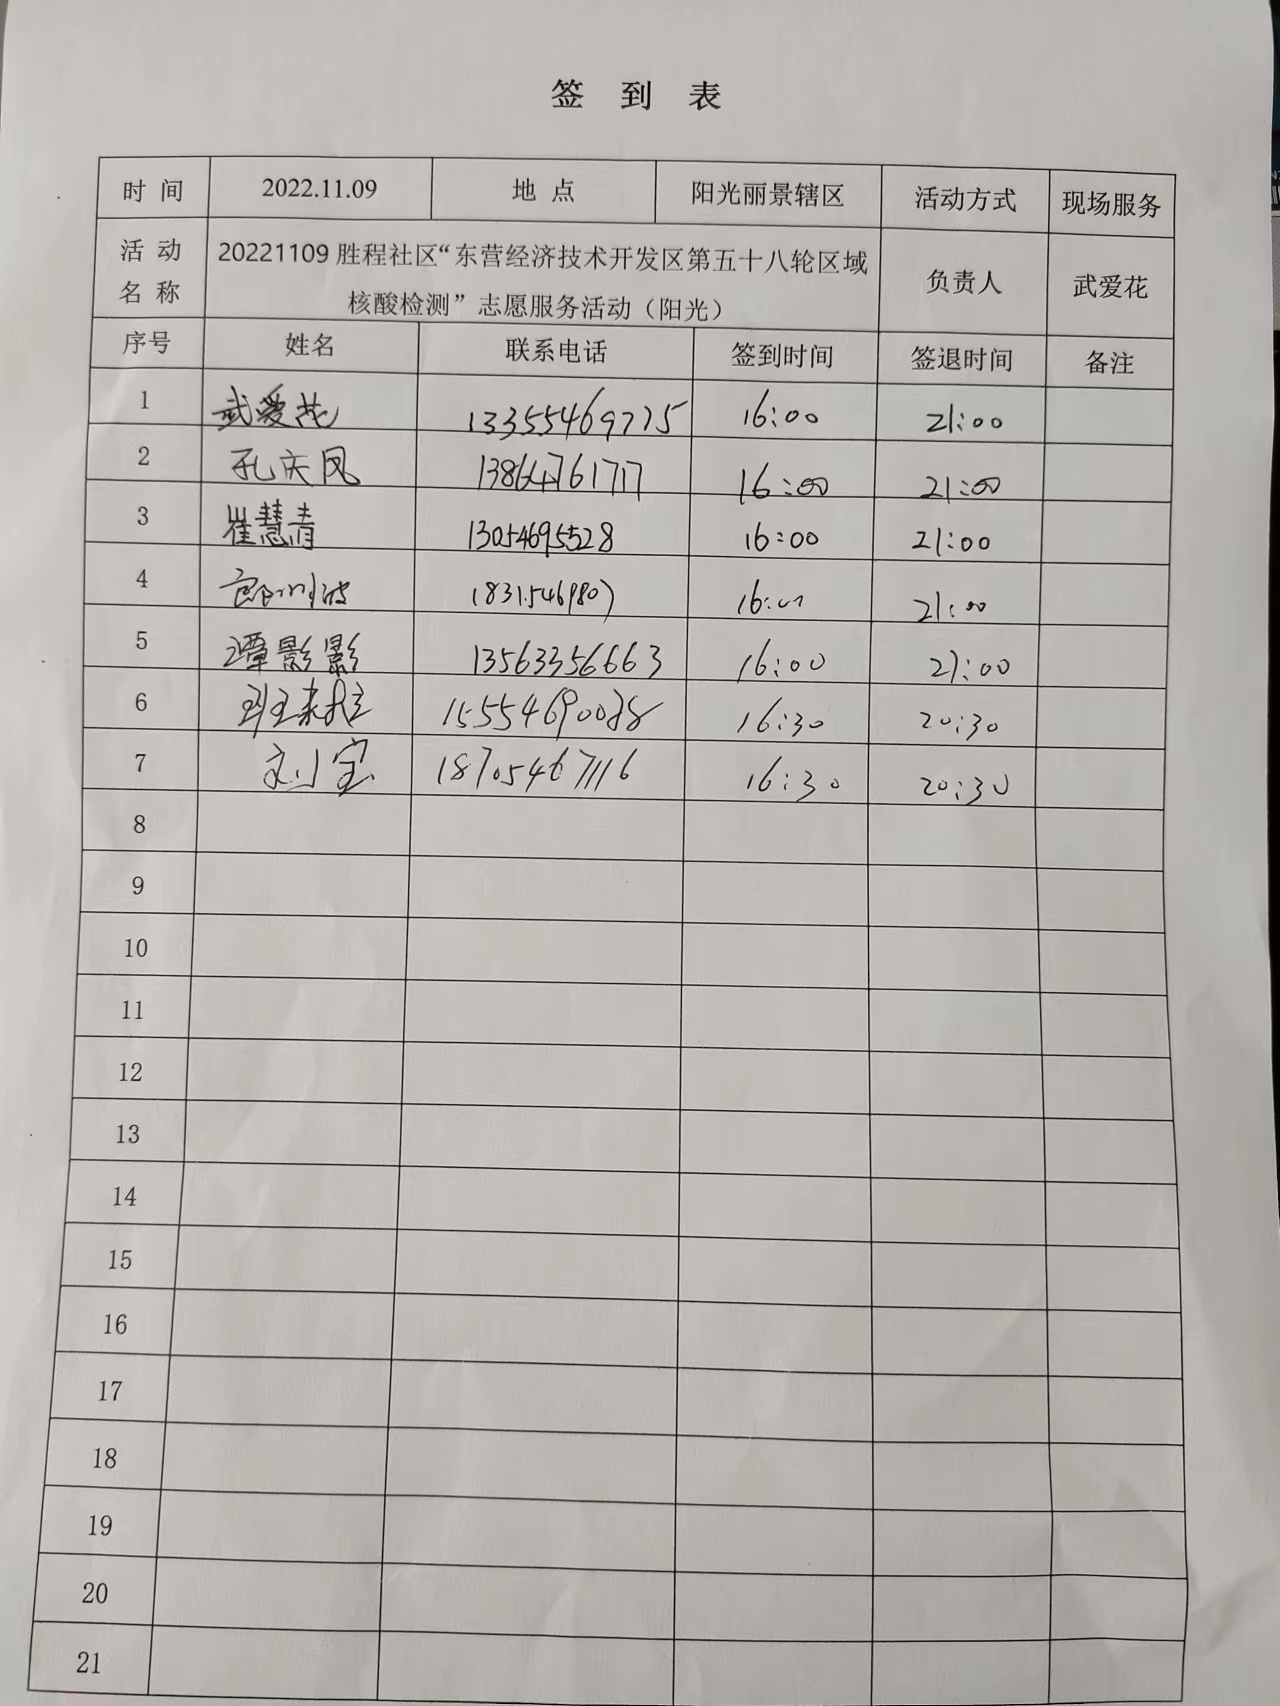 签 到 表
时 间 2022.11.09 地 点 阳光丽景辖区 活动方式 现场服务
活 动 名 称 20221109 胜程社区“东营经济技术开发区第五十八轮区域 负责人 武爱花
核酸检测”志愿服务活动（阳光）
序号 姓名 联系电话 签到时间 签退时间 备注
1 武爱花 13355469775 16:00 21:00
2 孔庆凤 13864761717 16:00 21:00
3 崔慧青 13054695528 16:00 21:00
4 16:00 21:00
5 谭影影 13563356663 16:00 21:00
6 16:30 20:30
7 刘宝 18705467116 16:30 20:30
8
9
10
11
12
13
14
15
16
17
18
19
20
21